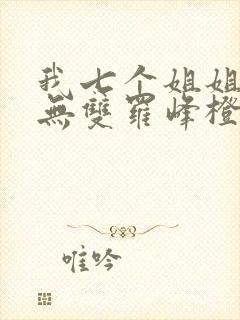 我七个姐姐
無雙羅峰橙
唯吟